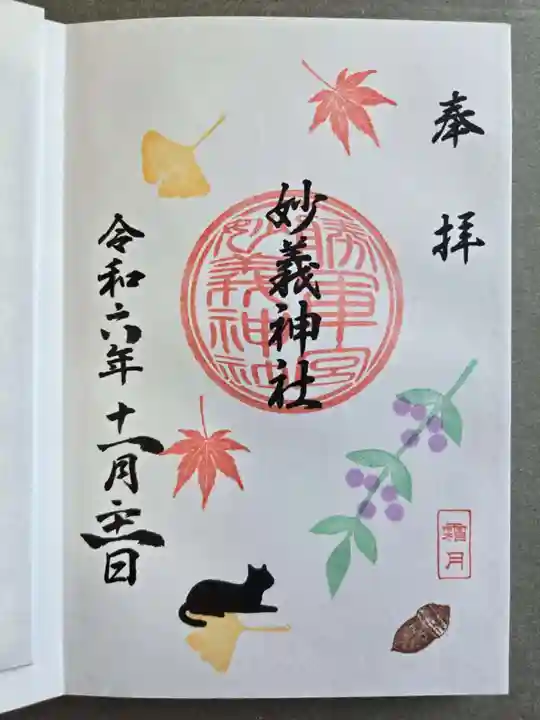 奉拝
勝軍宮
妙義神社
妙義神社
令和六年十一月二十一日
霜月